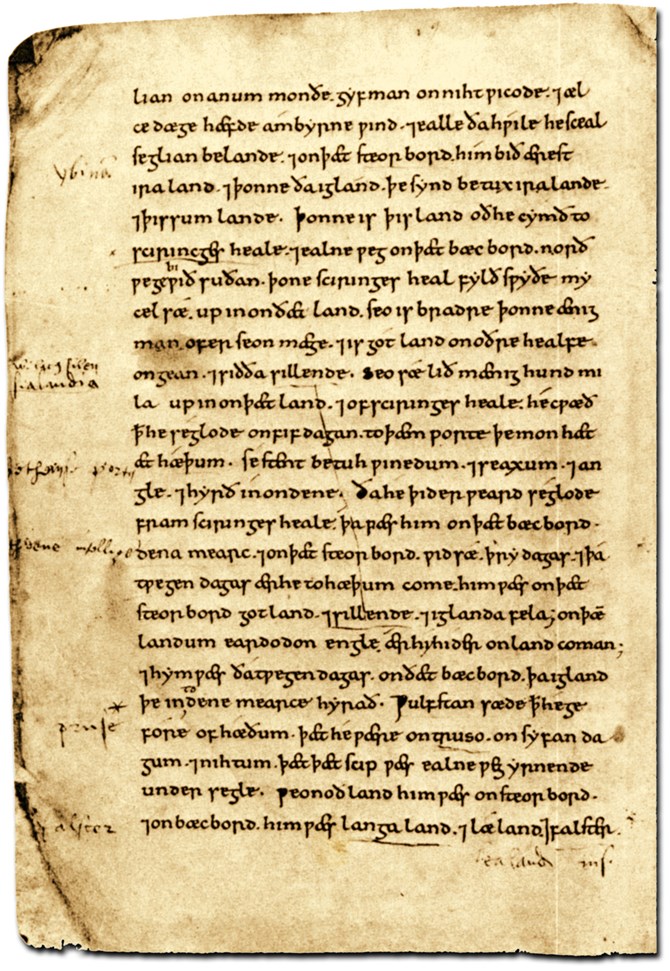 lian on anum monðe. gyf man on niht ƿicode. ⁊ æl
ce dæge hæfde ambyrne ƿind. ⁊ ealle ða hƿile he sceal
seglian be lande. ⁊ on þæt steorbord. him bið ærest
iraland. ⁊ þonne ða igland. þe synd betux iralande.
⁊ þissum lande. Þonne is þis land oð he cymð to
sciringes heale. ⁊ ealne ƿeg on þæt bæcbord. norð
ƿeg. ƿið suðan. þone sciringes heal fylð sƿyðe my
cel sæ. up in on ðæt land. seo is bradre þonne ænig
man ofer seon mæge. ⁊ is gotland on oðre healfe
ongean. ⁊ siðða sillende. Seo sæ lið mænig hund mi
la up in on þæt land. ⁊ of sciringes heale. he cƿæð
ꝥ he seglode on fif dagan. to þæm porte þe mon hæt
æt hæþum. se stent betuh ƿinedum. ⁊ seaxum. ⁊ an
gle. ⁊ hyrð in on dene. ða he þiderƿeard seglode
fram sciringes heale. þa ƿæs him on þæt bæcbord.
dena mearc. ⁊ on þæt steorbord. ƿid sæ. þry dagas. ⁊ þa
tƿegen dagas ær he to hæþum come. him ƿæs on þæt
steorbord gotland. ⁊ sillende. ⁊ iglanda fela; on þæm
landum eardodon engle. ær hi hider on land coman;
⁊ hym ƿæs ða tƿegen dagas. on ðæt bæcbord. þa igland
þe in to denemearce hyrað. Ƿulfstan sæde ꝥ he ge
fore of hæðum. þæt he ƿære on truso. on syfan da
gum. ⁊ nihtum. þæt þæt scip ƿæs ealne ƿeg yrnende
under segle. Ƿeonoðland him ƿæs on steorbord.
⁊ on bæcbord. him ƿæs langaland. ⁊ læland. ⁊ falster.